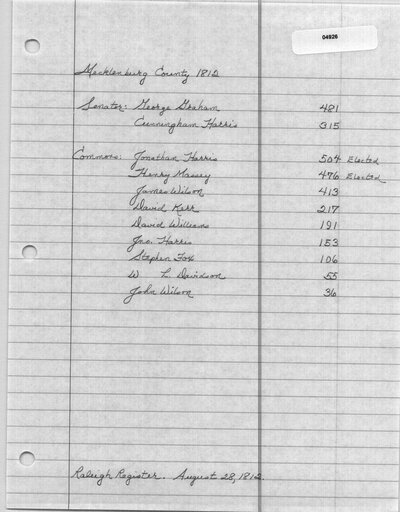 04926
Mecklenburg County 1812
Senate: George Graham 481
Cunningham Harris 315
Commons: Jonathan Harris 504 Elected
Henry Massey 476 Elected
James Wilson 413
David Kerr 217
David Williams 191
Jno. Harris 153
Stephen Fox 106
W L. Davidson 55
John Wilson 36
Raleigh Register. August 28, 1812.